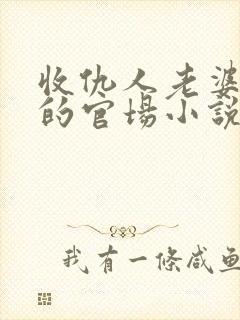 收仇人老婆
的官場小説
我有一條咸鱼